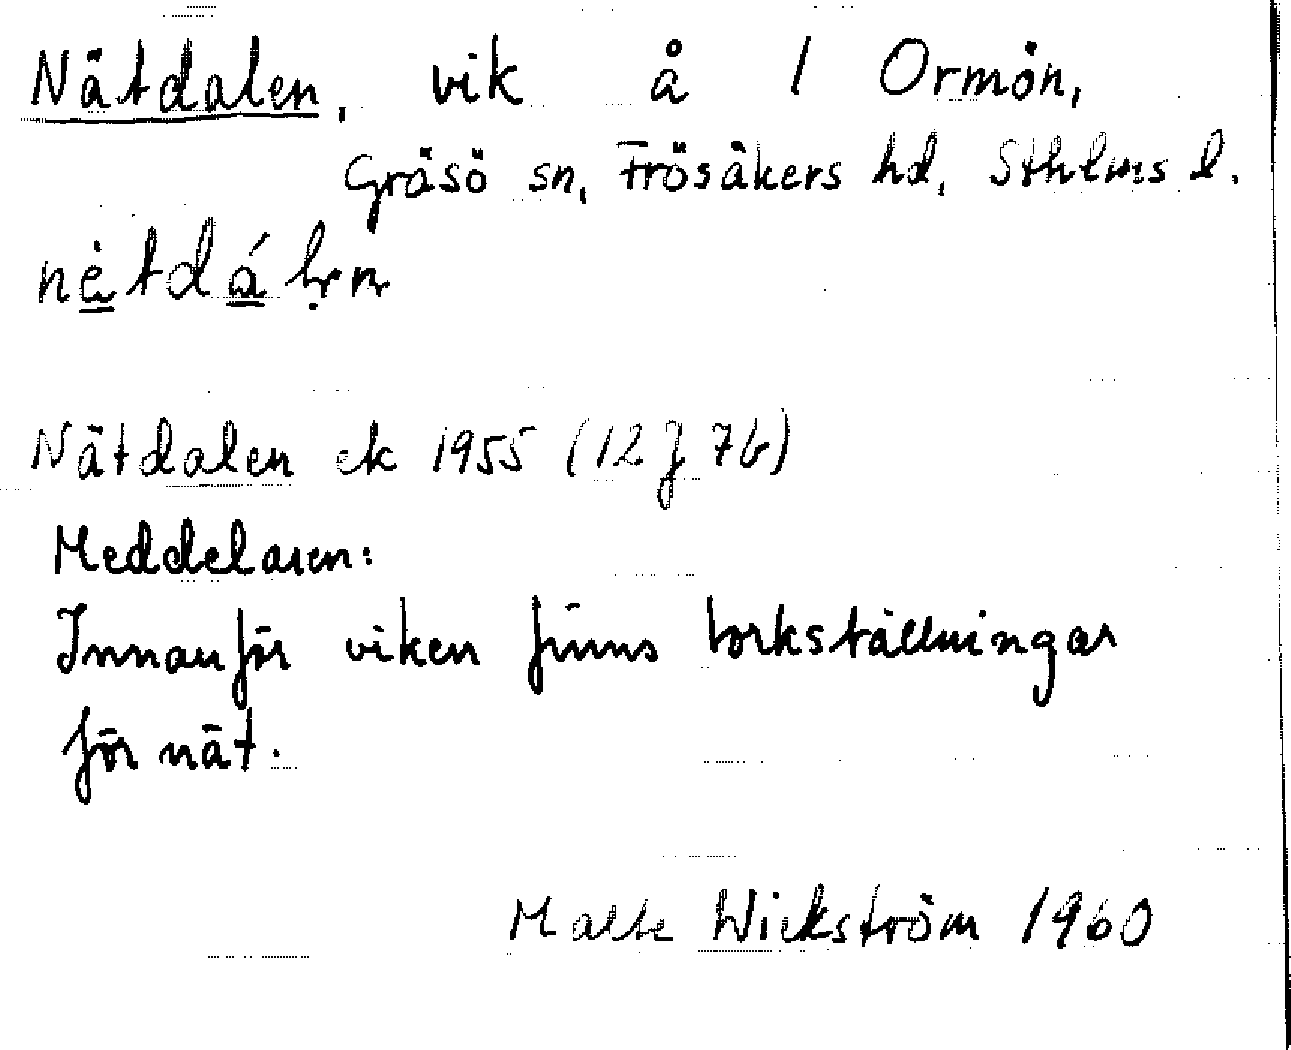 Nätdalen, vik å 1 Ormön,
Gräsö sn, Frösåkers hd, Sthlms l.
nètdálən
Nätdalen ek 1955 (12 J 7b)
Meddelaren:
Innanför viken finns torkställningar
för nät.
Malte Wickström 1960